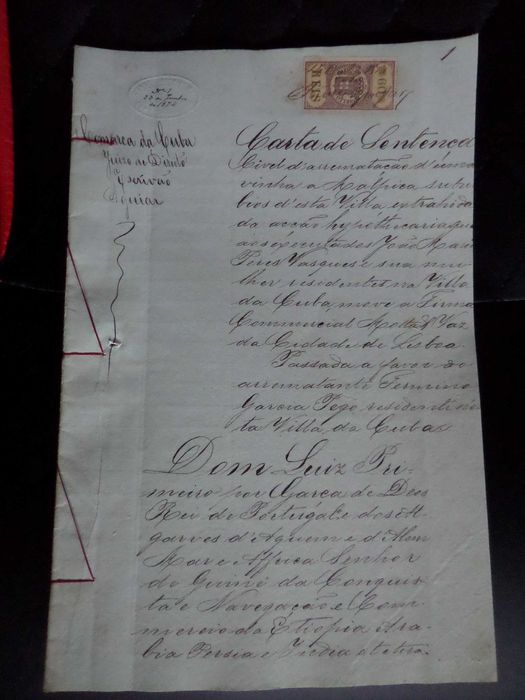 1
60
REIS
60
REIS
Comarca da Cuba
Juizo de Direito
Escrivão
Aguiar
Carta de Sentença
Civel d'arrematação d'uma
vinha a Malpica, subur
bios d'esta Villa extrahida
da acção hypothecaria que
aos executados João Maria
Peres Vasques e sua mu
lher residentes na Villa
da Cuba, move a Firma
Commercial Motta & Vaz
da Cidade de Lisboa.
Passada a favor do
arrematante Fermino
Garcia Pego, residente nes
ta Villa da Cuba
Dom Luiz Pri-
meiro por Graça de Deos
Rei de Portugal e dos Al
garves d'Aquem e d'Alem
Mar e Africa Senhor
de Guiné da Conquis-
ta e Navegação e Com-
mercio da Ethiopia Ara-
bia Persia e India etcetera.